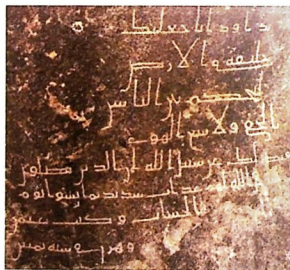 يداود انا جعلنك
خليفة في الارض
فاحكم بين الناس
بالحق ولا تتبع الهوى
فيضلك عن سبيل الله ان الذين يضلون
عن سبيل الله لهم عذاب شديد بما نسوا يوم
الحساب وكتب عثمن
وهرن سنة ثمنين